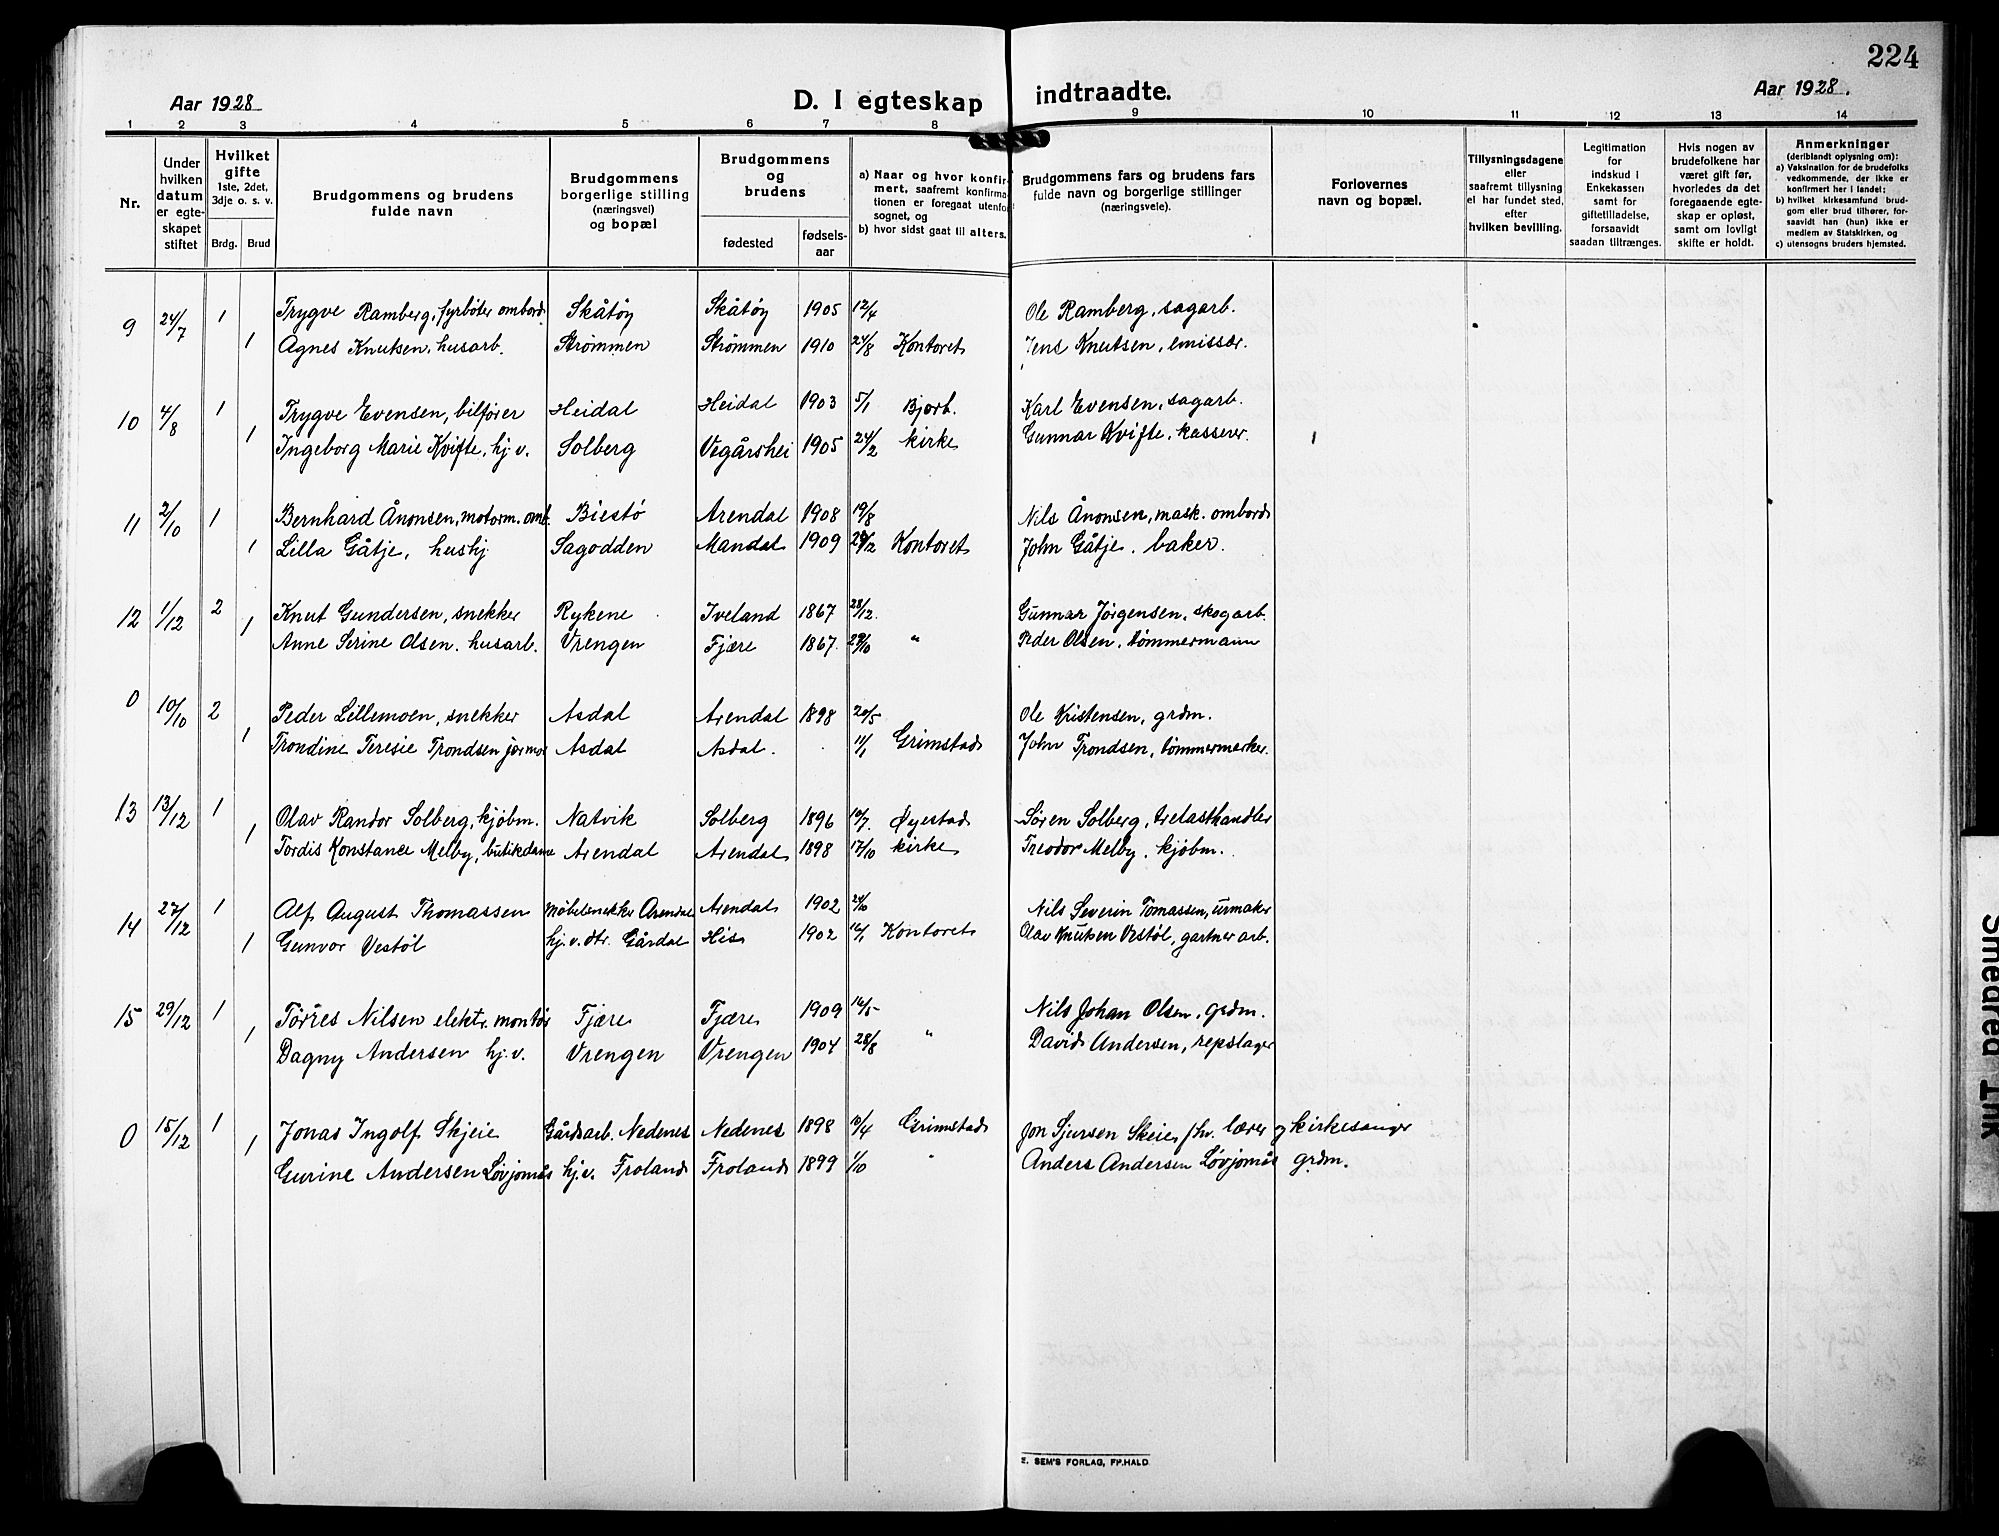 224
Aar 1928
D. I egteskap indtraadte.
Aar 1928.
1 2 3 4 5 6 7 8 9 10 11 12 13 14
Nr.
Under hvilken datum er egteskapet stiftet
Hvilket gifte 1ste, 2det, 3dje o. s. v.
Brdg. Brud
Brudgommens og brudens fulde navn
Brudgommens borgerlige stilling (næringsvei) og bopæl
Brudgommens og brudens
fødested
fødsels-aar
a) Naar og hvor konfirmert, saafremt konfirmationen er foregaat utenfor sognet, og
b) hvor sidst gaat til alters.
Brudgommens fars og brudens fars fulde navn og borgerlige stillinger (næringsveie).
Forlovernes navn og bopæl.
Tillysningsdagene eller saafremt tillysning ei har fundet sted, efter hvilken bevilling.
Legitimation for indskud i Enkekassen samt for giftetilladelse, forsaavidt saadan tiltrænges.
Hvis nogen av brudefolkene har været gift før, hvorledes da det foregaaende egteskap er opløst, samt om lovligt skifte er holdt.
Anmerkninger (deriblandt oplysning om):
a) Vaksination for de brudefolks vedkommende, der ikke er konfirmert her i landet;
b) hvilket kirkesamfund brudgom eller brud tilhører, forsaavidt han (hun) ikke er medlem av Statskirken, og
c) utensogns bruders hjemsted.
9 24/7 1 Trygve Ramberg, fyrbøter ombord Skåtøy Skåtøy 1905 12/4 Ole Ramberg, sagarb.
1 Agnes Knutsen, husarb. Strømmen Strømmen 1910 24/8 Kontoret Jens Knutsen, emissær.
10 4/8 1 Trygve Evensen, bilfører Heidal Heidal 1903 5/1 Bjorb. Karl Evensen, sagarb.
1 Ingeborg Marie Kvifte, hj.v. Solberg Vegårshei 1905 24/2 kirke Gunnar Kvifte, kasserer.
11 2/10 1 Bernhard Ånonsen, motorm. omb. Biestø Arendal 1908 19/8 Nils Ånonsen, mask. ombord
1 Lilla Gåtje, hushj Sagodden Mandal 1909 Kontoret John Gåtje, baker.
12 1/12 2 Knut Gundersen, snekker Rykene Iveland 1867 28/12. Gunnar Jørgensen, skogarb.
1 Anne Serine Olsen, husarb. Vrengen Fjære 1867. 29/10 " Peder Olsen, tømmermann
0 10/10 2 Peder Lillemoen, snekker Asdal Arendal 1898 20/5 Ole Kristensen, grdm.
1 Trondine Teresie Trondsen jormor Asdal Asdal. 11/1 Grimstad John Trondsen, tømmermerker.
13 13/12 1 Olav Randor Solberg, kjøbm. Natvik Solberg 1896 10/7. Øyestad Søren Solberg, trelasthandler
1 Tordis Konstance Melby, butikdame Arendal Arendal 1898 17/10 kirke Treodor Melby, kjøbm.
14 27/12 1 Alf August Thomassen Møbelsnekker Arendal Arendal 1902 24/10 Nils Severin Tomassen, urmaker
1 Gunvor Vestøl hj.v. dtr. Gårdal His 1902 16/1 Kontoret Olav Knutsen Vestøl, gartnerarb.
15 29/12 1 Tørres Nilsen elektr. montør Fjære Fjære 1909 16/5 Nils Johan Olsen, grdm.
1 Dagny Andersen hj.v. Vrengen Vrengen 1904 28/8 " David Andersen, repslager
0 15/12 1 Jonas Ingolf Skjeie Gårdsarb. Nedenes Nedenes 1898 10/4 Grimstad Jon Sjursen Skeie, fhv. lærer og kirkesanger
1 Gurine Andersen Løvjomås hj.v. Froland Froland 1899 1/10 " Anders Andersen Løvjomås grdm.
E. SEM'S FORLAG, FR.HALD
Smedred Ink